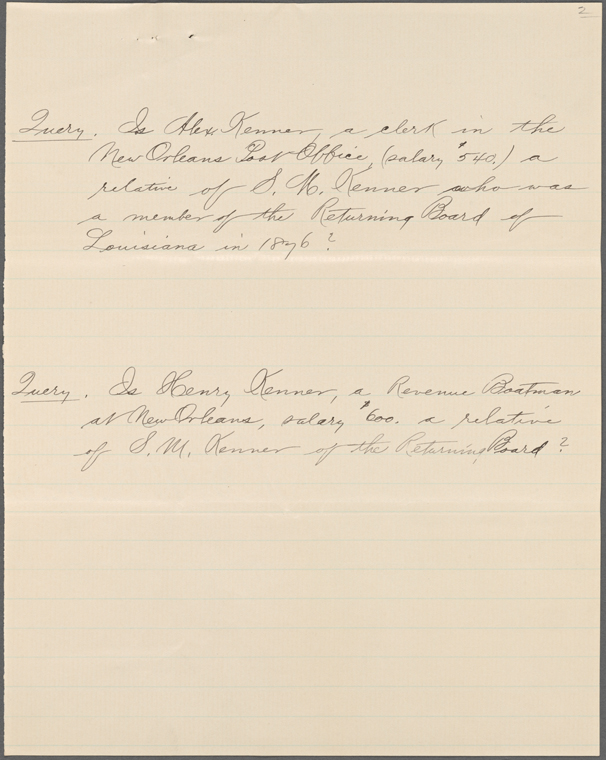 2
Query. Is Alex Kenner, a clerk in the
New Orleans Post Office, (salary $540.) a
relative of S. M. Kenner who was
a member of the Returning Board of
Louisiana in 1876?
Query. Is Henry Kenner, a Revenue Boatman
at New Orleans, salary $600. a relative
of S. M. Kenner of the Returning Board?